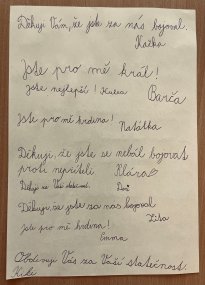 Děkuji Vám, že jste za nás bojoval.
Katka
Jste pro mě král!
Jste nejlepší!
Barča
Jste pro mě hrdina!
Natálka
Děkuji, že jste se nebál bojovat
proti nepříteli Klára
Děkuji, že jste za nás bojoval
Jste pro mě hrdina!
Emma
Obdivuji Vás za Vaši statečnost.